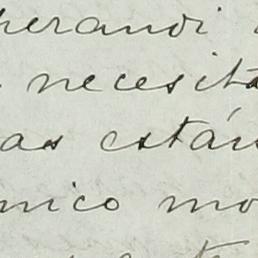 perandi
necesita
as están
nico mo